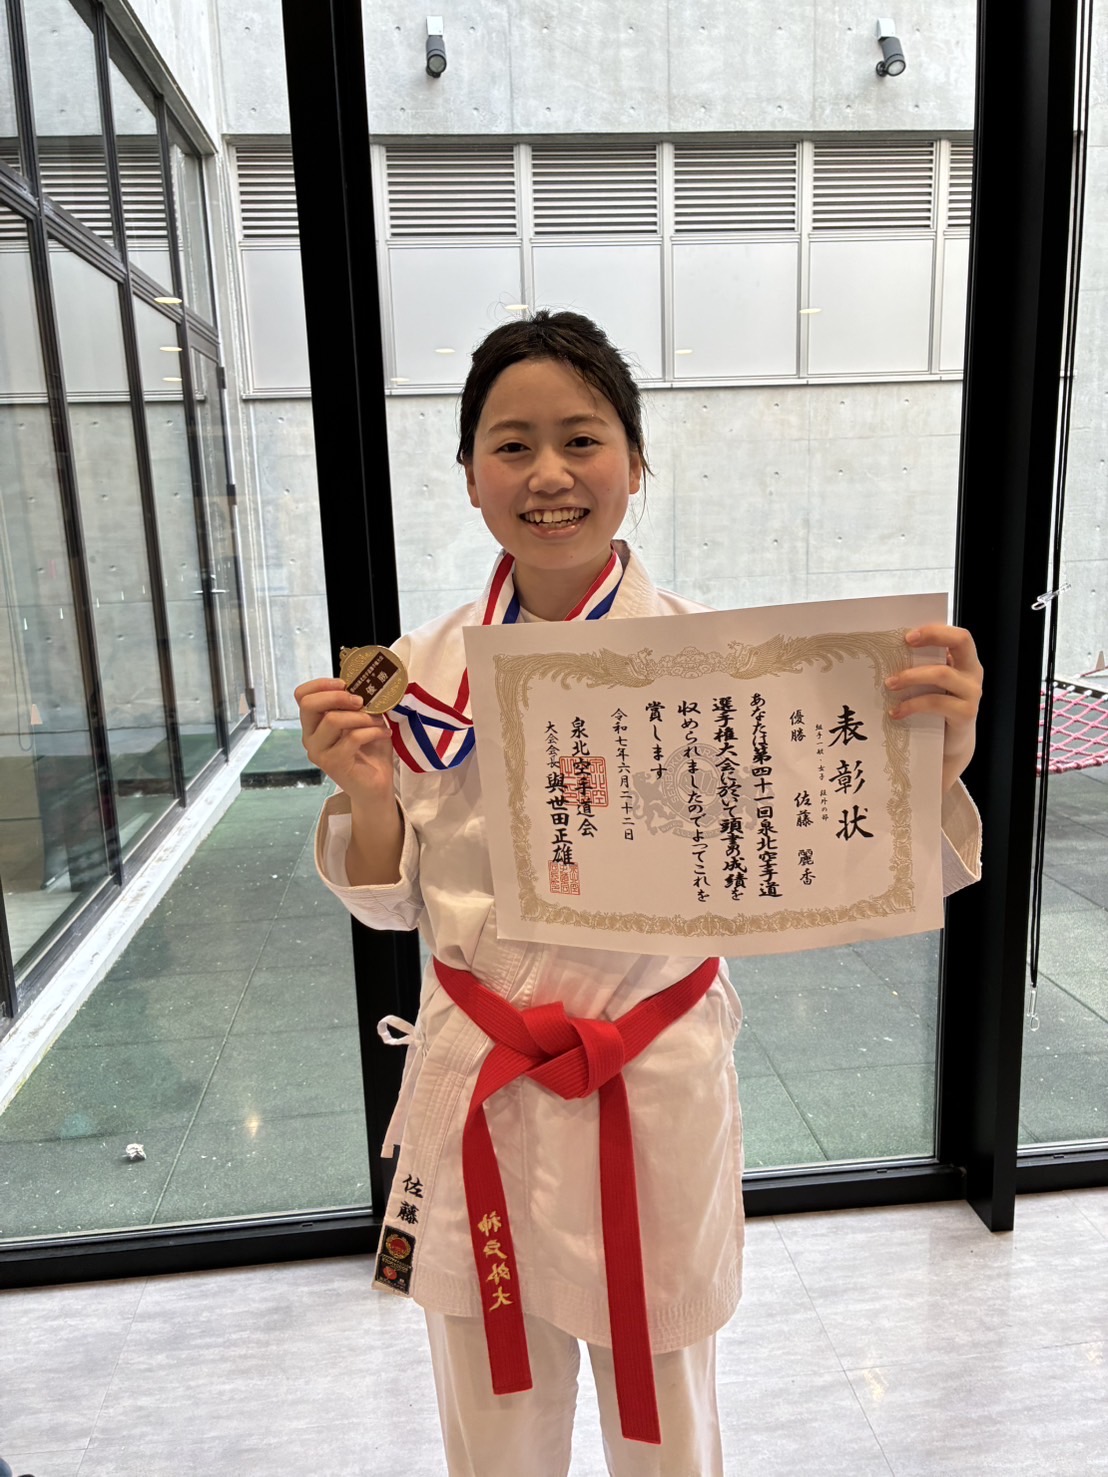 表彰状
組手一般・女子 段外の部
優勝 佐藤 麗香
あなたは第四十一回泉北空手道
選手権大会に於いて頭書の成績を
収められましたのでよってこれを
賞します
令和七年六月二十二日
泉北空手道会
大会会長 與世田正雄
優勝
佐藤
神戸外大